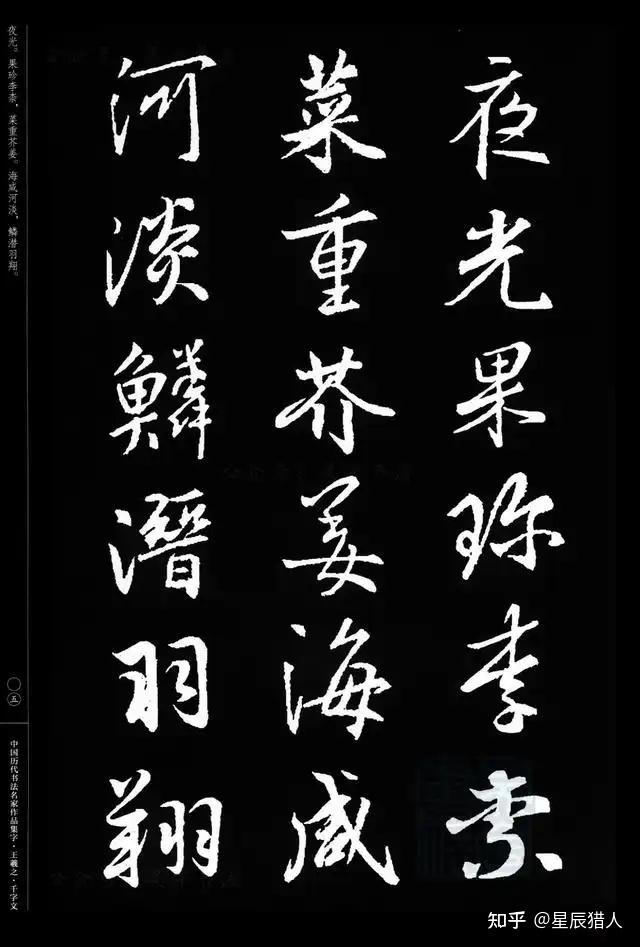 夜光果珍李柰
菜重芥姜海咸
河淡鳞潜羽翔
夜光。果珍李柰，菜重芥姜。海咸河淡，鳞潜羽翔。
〇五
中国历代书法名家作品集字·王羲之·千字文
知乎 @星辰猎人